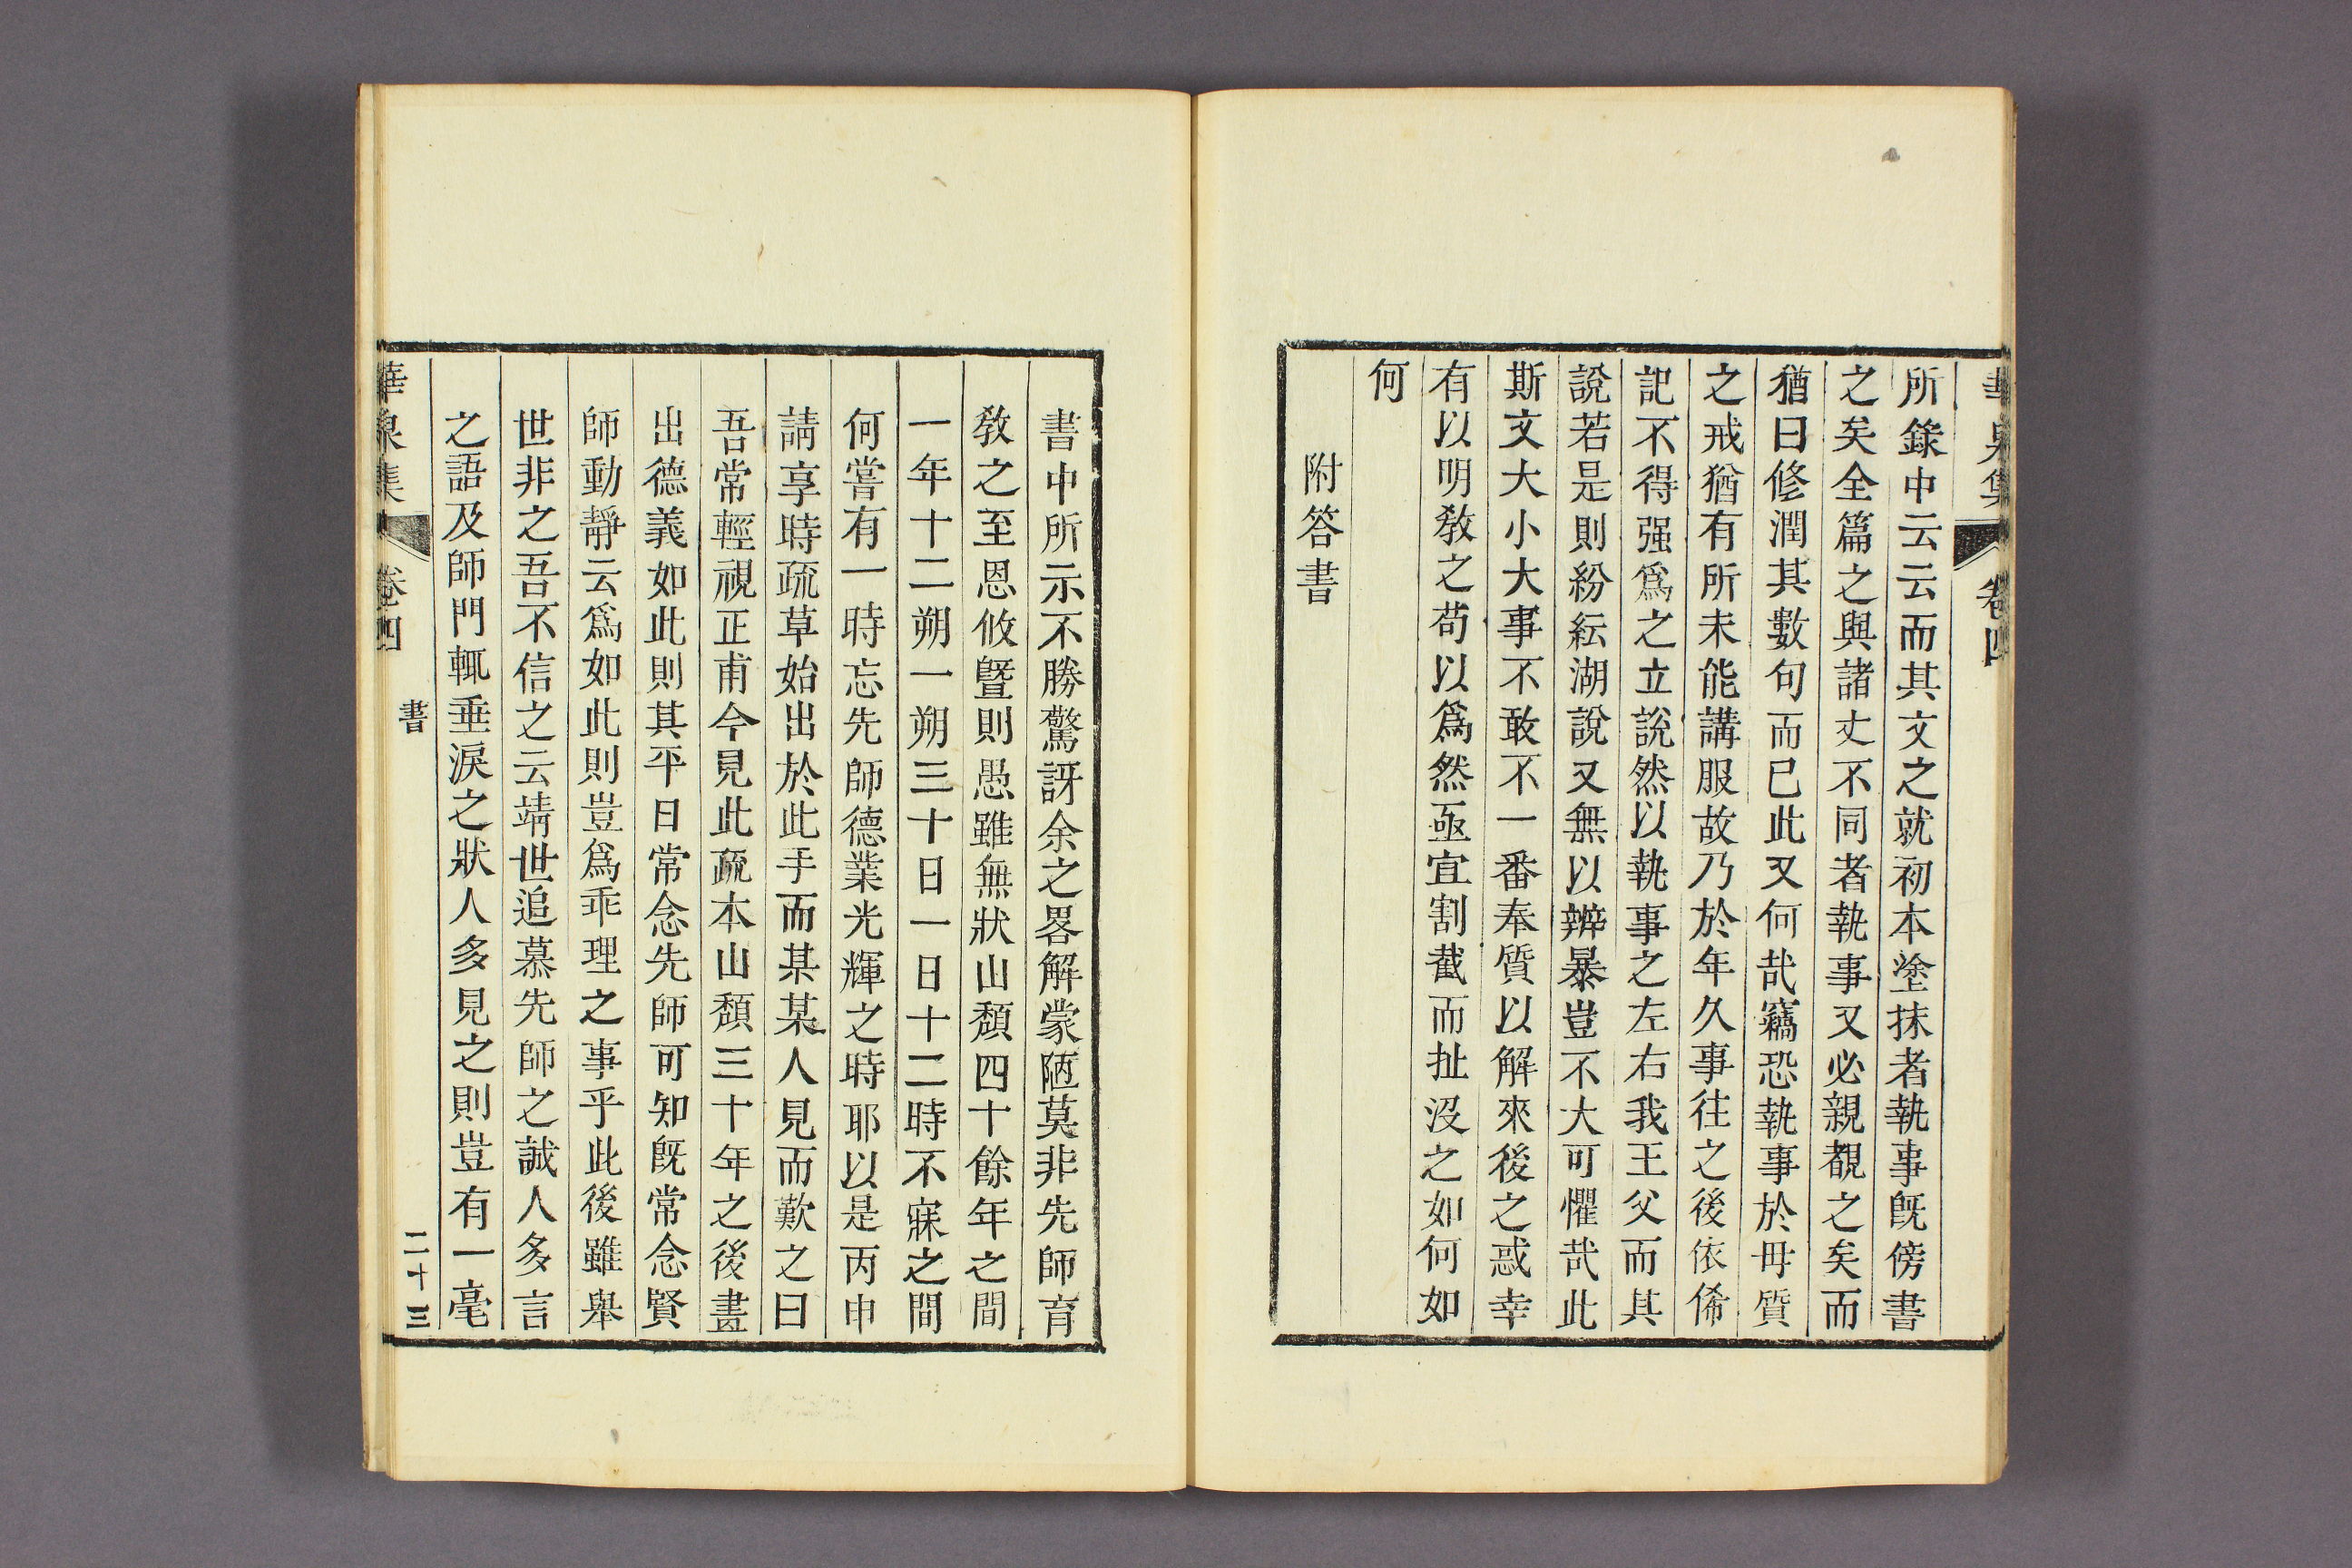 華泉集 卷四
所錄中云云而其文之就初本塗抹者執事旣傍書
之矣全篇之與諸丈不同者執事又必親覩之矣而
猶曰修潤其數句而已此又何哉竊恐執事於毋質
之戒猶有所未能講服故乃於年久事往之後依俙
記不得强爲之立說然以執事之左右我王父而其
說若是則紛紜湖說又無以辨暴豈不大可懼哉此
斯文大小大事不敢不一番奉質以解來後之惑幸
有以明敎之苟以爲然亟宜割截而扯沒之如何如
何
附答書
書中所示不勝驚訝余之畧解蒙陋莫非先師育
敎之至恩攸曁則愚雖無狀山頹四十餘年之間
一年十二朔一朔三十日一日十二時不寐之間
何嘗有一時忘先師德業光輝之時耶以是丙申
請享時疏草始出於此手而某某人見而歎之曰
吾常輕視正甫今見此疏本山頹三十年之後畫
出德義如此則其平日常念先師可知旣常念賢
師動靜云爲如此則豈爲乖理之事乎此後雖舉
世非之吾不信之云靖世追慕先師之誠人多言
之語及師門輒垂淚之狀人多見之則豈有一毫
華泉集 卷四 書 二十三